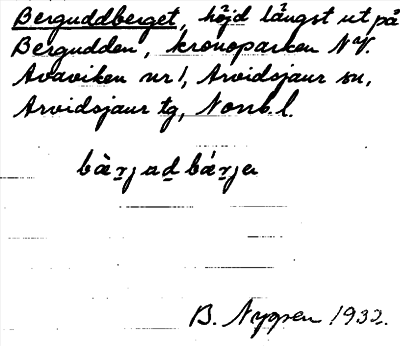 Berguddberget, höjd längst ut på
Bergudden, kronoparken NV.
Avaviken nr 1, Arvidsjaur sn,
Arvidsjaur tg, Norrb. l.
bæ̀rjadbǽrjer
B. Nygren 1932.